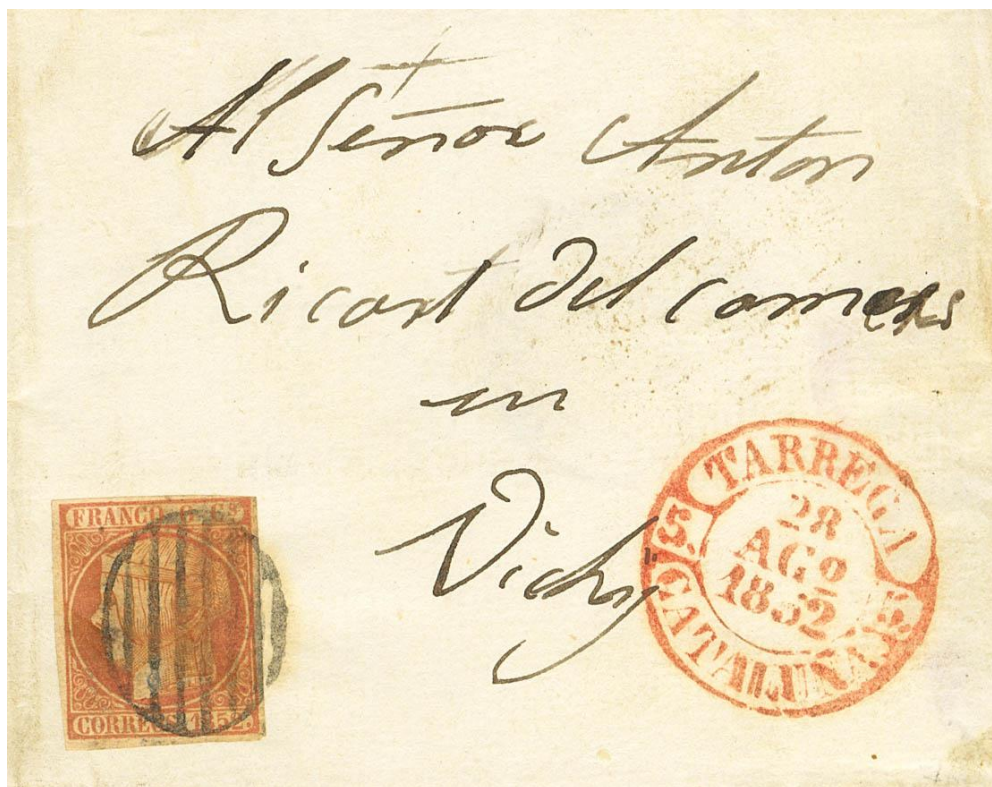 Al Señor Anton
Ricart del comercio
en
Vichy
FRANCO. 6 Cs
CORREOS 1852.
TARREGA
28
AGO
1852
5 5
CATALUÑA